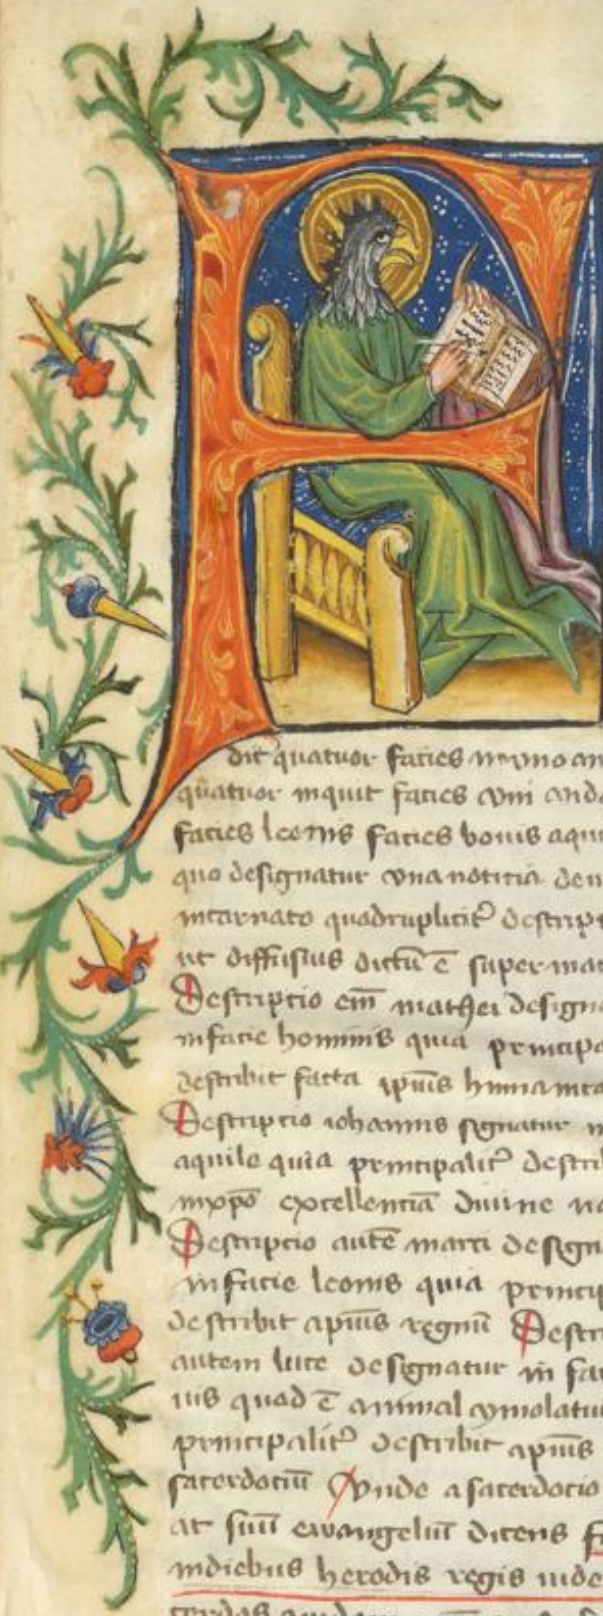 dit quatuor facies in vno an
quatuor inquit facies vni and
facies leonis facies bouis aqui
quo designatur vna noticia de
incarnato quadruplicit̉ descrip
ut diffusius dictū ē super mat
Descriptio em̄ mathei design
in facie hominis quia principa
describit facta ip̄ius humanita
Descriptio iohannis signatur
aquile quia principalit̉ descri
in xp̄o excellenciā diuine na
Descriptio autē marci design
in facie leonis quia princip
describit ap̄ius regnū Descri
autem luce designatur in fac
uis quod ē animal ymolatiu
principalit̉ describit ap̄ius
sacerdociū Vnde a sacerdocio
at suū ewangeliū dicens f
in diebus herodis regis iude